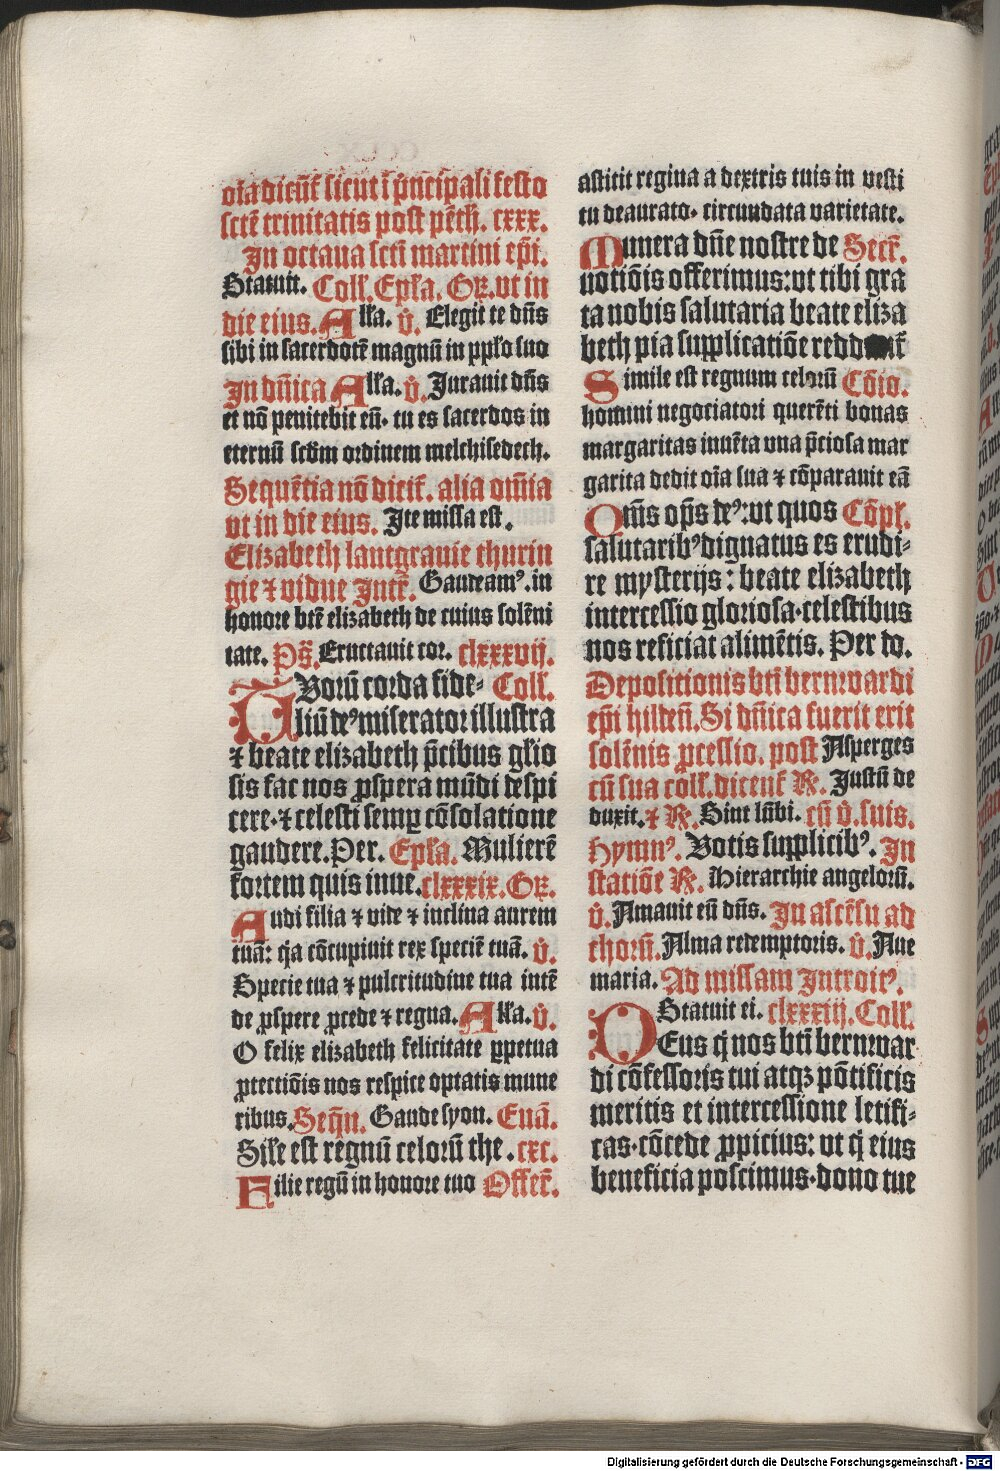 oīa dicūt᷑ sicut ī p̄ncipali festo
sctē trinitatis post pēth. cxxx.
In octaua scti martini ep̄i.
Statuit. Coll̄. Ep̄la. Gr̄. vt in
die eius. All̄a. v̄. Elegit te dn̄s
sibi in sacerdotē magnū in pp̄lo suo
In dn̄ica All̄a. v̄. Iurauit dn̄s
et nō penitebit eū. tu es sacerdos in
eternū scd̄m ordinem melchisedech.
Sequētia nō dicit᷑. alia om̄ia
vt in die eius. Ite missa est.
Elizabeth lantgrauie thurin
gie ⁊ vidue Intr̄. Gaudeam⁹. in
honore btē elizabeth de cuius solēni
tate. Ps̄. Eructauit cor. clxxxvij.
TUorū corda fide- Coll̄.
liū de⁹ miserator illustra
⁊ beate elizabeth p̄cibus gl̄io
sis fac nos ꝓspera mūdi despi
cere. ⁊ celesti semꝑ cōsolatione
gaudere. Per. Ep̄la. Mulierē
fortem quis inue. clxxxix. Gr̄.
Audi filia ⁊ vide ⁊ inclina aurem
tuā: q̄a cōcupiuit rex speciē tuā. v̄.
Specie tua ⁊ pulcritudine tua intē
de ꝓspere ꝓcede ⁊ regna. All̄a. v̄.
O felix elizabeth felicitate ꝑpetua
ꝓtectiōis nos respice optatis mune
ribus. Seqn̄. Gaude syon. Euā.
Sil̄e est regnū celorū the. cxc.
Filie regū in honore tuo Offer̄.
astitit regina a dextris tuis in vesti
tu deaurato. circundata varietate.
Munera dn̄e nostre de Secr̄.
uotiōis offerimus: vt tibi gra
ta nobis salutaria beate eliza
beth pia supplicatiōe redd
Simile est regnum celorū Cōio.
homini negociatori querēti bonas
margaritas inuēta vna p̄ciosa mar
garita dedit oīa sua ⁊ cōparauit eā
Om̄s op̄s de⁹: vt quos Cōpl̄.
salutarib⁹ dignatus es erudi-
re mysterijs: beate elizabeth
intercessio gloriosa. celestibus
nos reficiat alimētis. Per do.
Depositionis bti bernwardi
ep̄i hilden̄. Si dn̄ica fuerit erit
solēnis ꝓcessio. post Asperges
cū sua coll̄. dicent᷑ R̄. Iustū de
duxit. ⁊ R̄. Sint lūbi. cū v̄. suis.
Hymn⁹. Votis supplicib⁹. In
statiōe R̄. Hierarchie angelorū.
v̄. Amauit eū dn̄s. In ascēsu ad
chorū. Alma redemptoris. v̄. Aue
maria. Ad missam Introit⁹.
Statuit ei. clxxxiij. Coll̄.
DEus q̄ nos bti bernwar
di cōfessoris tui atqꝫ pōtificis
meritis et intercessione letifi-
cas. cōcede ꝓpicius: vt q̄ eius
beneficia poscimus. dono tue
Digitalisierung gefördert durch die Deutsche Forschungsgemeinschaft - DFG